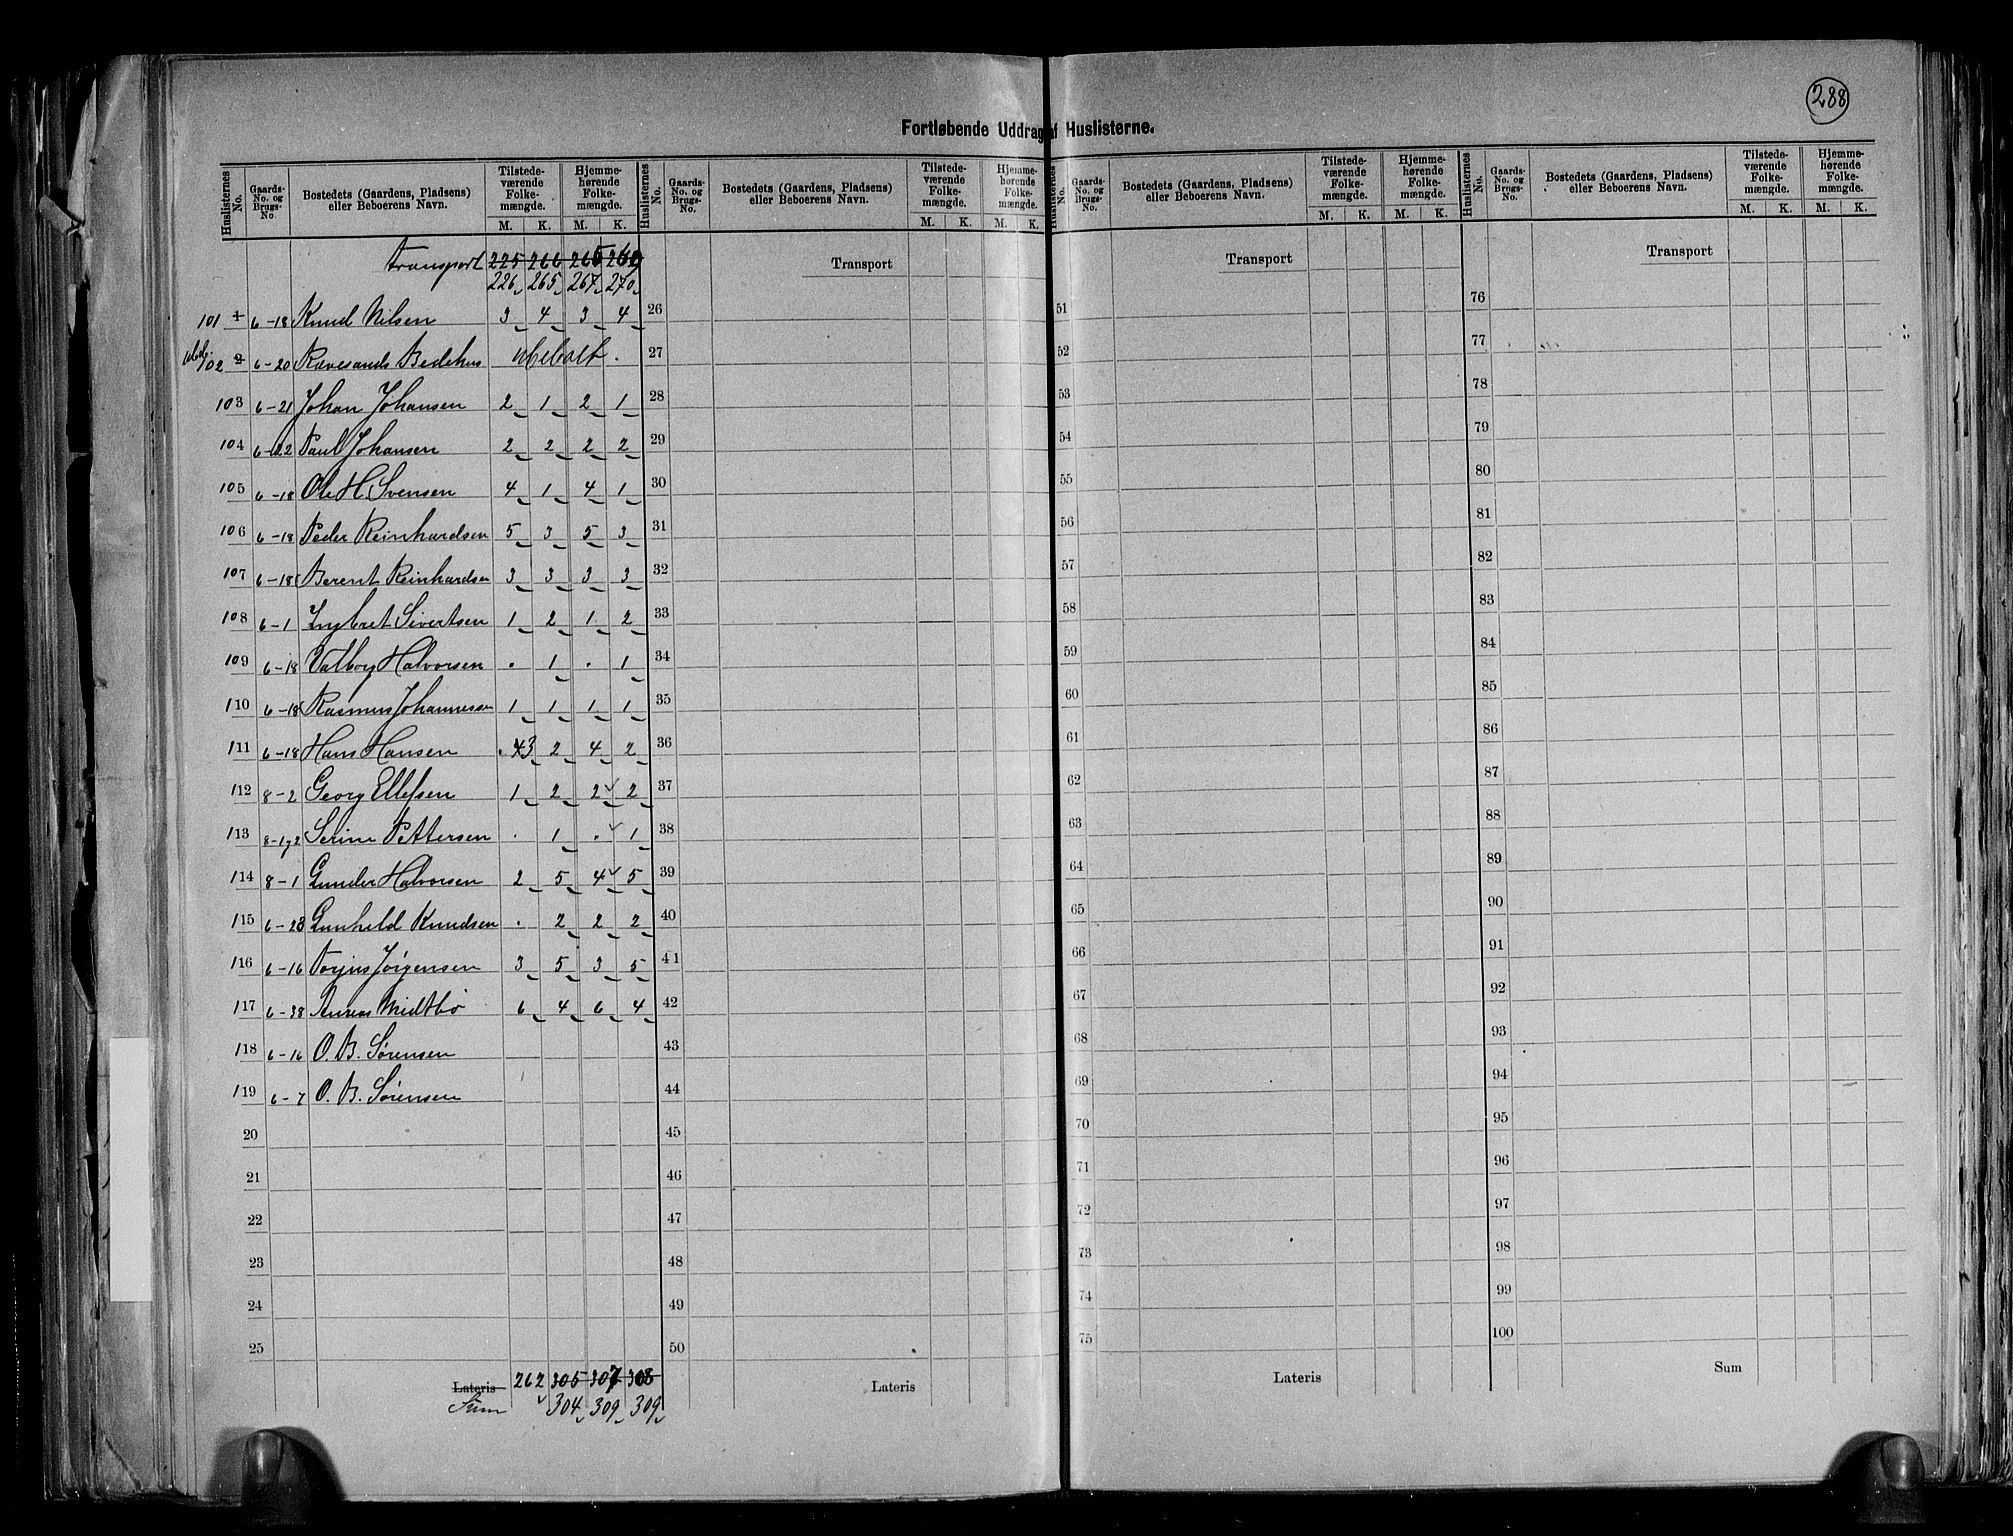 288
Fortløbende Uddrag af Huslisterne.
Huslisternes No. Gaards-No. og Brugs-No. Bostedets (Gaardens, Pladsens) eller Beboerens Navn. Tilstedeværende Folkemængde. M. K. Hjemmehørende Folkemængde. M. K.
Huslisternes No. Gaards-No. og Brugs-No. Bostedets (Gaardens, Pladsens) eller Beboerens Navn. Tilstedeværende Folkemængde. M. K. Hjemmehørende Folkemængde. M. K.
Huslisternes No. Gaards-No. og Brugs-No. Bostedets (Gaardens, Pladsens) eller Beboerens Navn. Tilstedeværende Folkemængde. M. K. Hjemmehørende Folkemængde. M. K.
Huslisternes No. Gaards-No. og Brugs-No. Bostedets (Gaardens, Pladsens) eller Beboerens Navn. Tilstedeværende Folkemængde. M. K. Hjemmehørende Folkemængde. M. K.
Transport 225 266 Transport Transport Transport
226 265 267 270
101 1 6-18 Knud Nilsen 3 4 3 4 26 51 76
102 2 6-20 Rævesands Bedehus Ubeboet. 27 52 77
103 6-21 Johan Johansen 2 1 2 1 28 53 78
104 6-22 Paul Johansen 2 2 2 2 29 54 79
105 6-18 Ole H. Svensen 4 1 4 1 30 55 80
106 6-18 Peder Reinhardsen 5 3 5 3 31 56 81
107 6-18 Berent Reinhardsen 3 3 3 3 32 57 82
108 6-1 Ingbret Sivertsen 1 2 1 2 33 58 83
109 6-18 Valborg Halvorsen . 1 . 1 34 59 84
110 6-18 Rasmus Johannessen 1 1 1 1 35 60 85
111 6-18 Hans Hansen . 43 2 4 2 36 61 86
112 8-2 Georg Ellefsen 1 2 2 2 37 62 87
113 8-1 & 2 Serine Pettersen . 1 . 1 38 63 88
114 8-1 Gunder Halvorsen 2 5 4 5 39 64 89
115 6-23 Gunhild Knudsen . 2 2 2 40 65 90
116 6-16 Torjus Jörgensen 3 5 3 5 41 66 91
117 6-38 Midtbö 6 4 6 4 42 67 92
118 6-16 O. B. Sørensen 43 68 93
119 6-7 O. B. Sørensen 44 69 94
20 45 70 95
21 46 71 96
22 47 72 97
23 48 73 98
24 49 74 99
25 50 75 100
Lateris 262 305 307 308 Lateris Lateris Sum
Sum 304 309 309